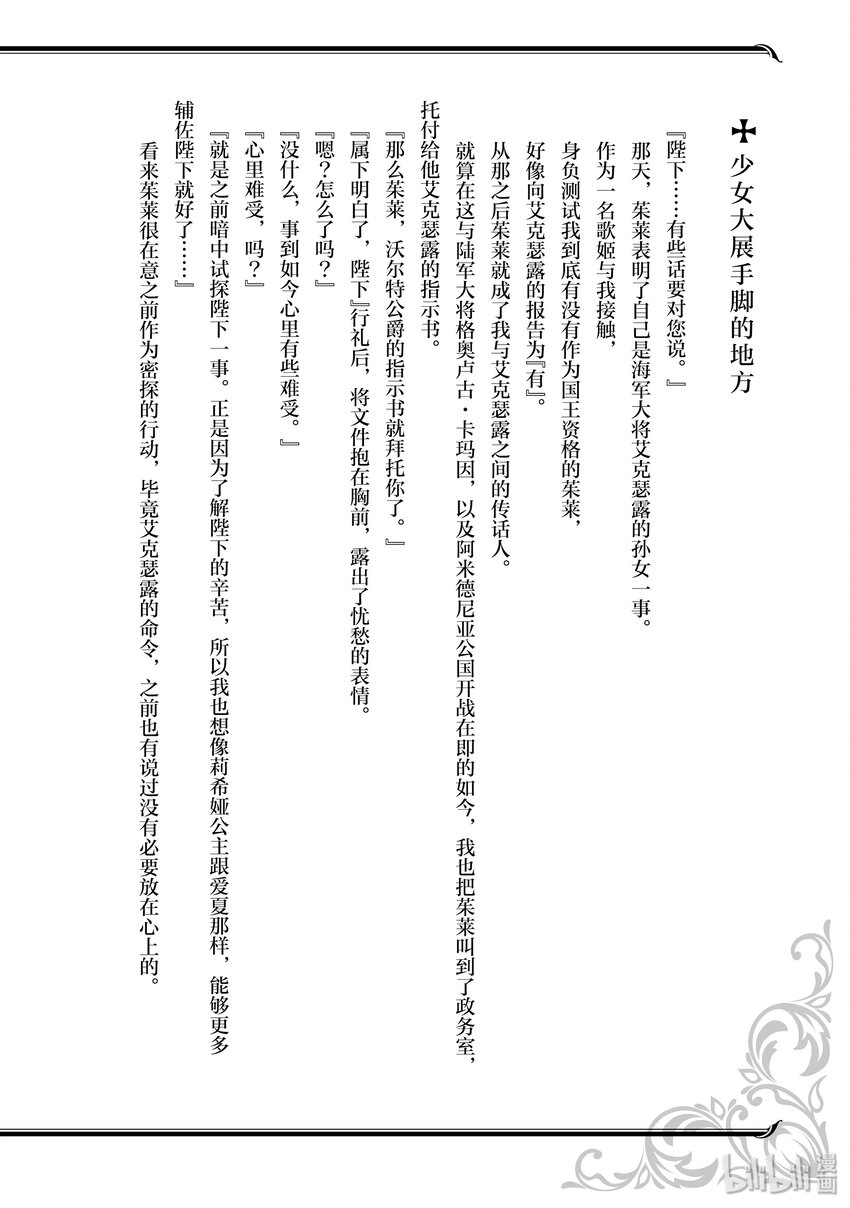 ✚ 少女大展手脚的地方
『陛下……有些话要对您说。』
那天，茱莱表明了自己是海军大将艾克瑟露的孙女一事。
作为一名歌姬与我接触，
身负测试我到底有没有作为国王资格的茱莱，
好像向艾克瑟露的报告为『有』。
从那之后茱莱就成了我与艾克瑟露之间的传话人。
就算在这与陆军大将格奥卢古·卡玛因，以及阿米德尼亚公国开战在即的如今，我也把茱莱叫到了政务室，
托付给他艾克瑟露的指示书。
『那么茱莱，沃尔特公爵的指示书就拜托你了。』
『属下明白了，陛下』行礼后，将文件抱在胸前，露出了忧愁的表情。
『嗯？怎么了吗？』
『没什么，事到如今心里有些难受。』
『心里难受，吗？』
『就是之前暗中试探陛下一事。正是因为了解陛下的辛苦，所以我也想像莉希娅公主跟爱夏那样，能够更多
辅佐陛下就好了……』
看来茱莱很在意之前作为密探的行动，毕竟艾克瑟露的命令，之前也有说过没有必要放在心上的。
bilibili漫画